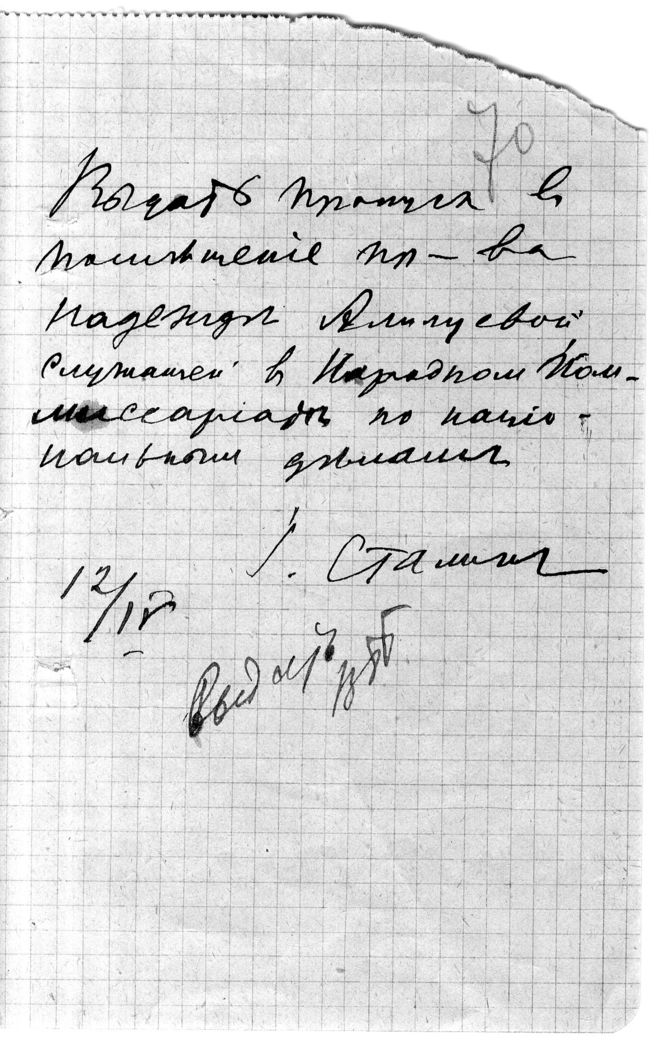 70
Выдать пропуск в
помѣщеніе пр-ва
Надеждѣ Алилуевой
служащей в Народном Ком-
миссаріатѣ по націо-
нальным дѣламъ
І. Сталин
12/IV
Выдать